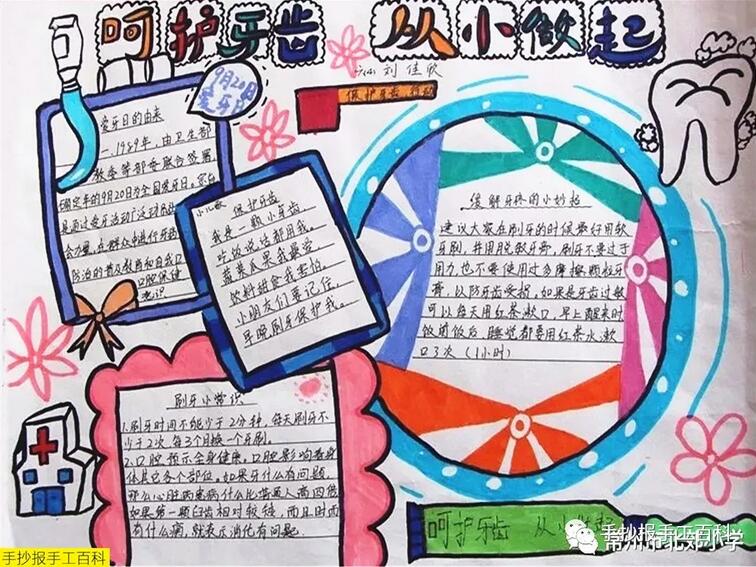 呵护牙齿 从小做起
刘佳欣
9月20日
爱牙日
爱牙日的由来
一.1989年,由卫生部
教委等部委联合签署,
确定每年的9月20日为全国爱牙日。宗旨
是通过爱牙活动广泛动员社
会力量,在群众中进行牙病
防治的普及教育
口腔保健
小儿歌
保护牙齿
我是一颗小牙齿,
吃饭说话都用我。
蔬菜瓜果我最爱
饮料甜食我害怕
小朋友们要记住,
早晚刷牙保护我。
缓解牙疼的小妙招
建议大家在刷牙的时候最好用软
牙刷,并用脱敏牙膏,刷牙不要过于
用力,也不要使用过多摩擦颗粒牙
膏,以防牙齿受损,如果是牙齿过敏
可以每天用红茶漱口,早上醒来时
饭前饭后,睡觉都要用红茶水漱
口3次(1小时)
刷牙小常识
1.刷牙时间不能少于2分钟,每天刷牙不
少于2次,每3个月换一个牙刷。
2.口腔预示全身健康。口腔影响着身
体其它多个部位。如果牙什么有问题,
那么心脏病患病什么比普通人高四倍
如果第一颗臼齿相对较矮,而且时而
有什么病,就表示消化有问题.
呵护牙齿 从小做起
手抄报手工百科
常州市北郊小学
手抄报手工百科